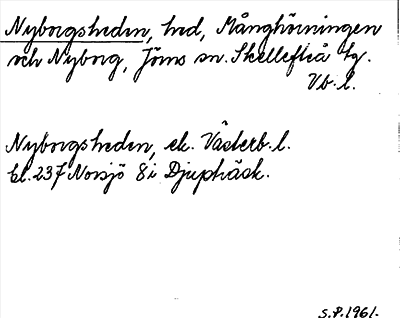 Nyborgsheden, hed, Månghörningen
och Nyborg, Jörns sn. Skellefteå tg.
Vb. l.
Nyborgsheden, ek. Västerb. l.
bl. 237 Norsjö 8 i Djupträsk.
S.P. 1961.